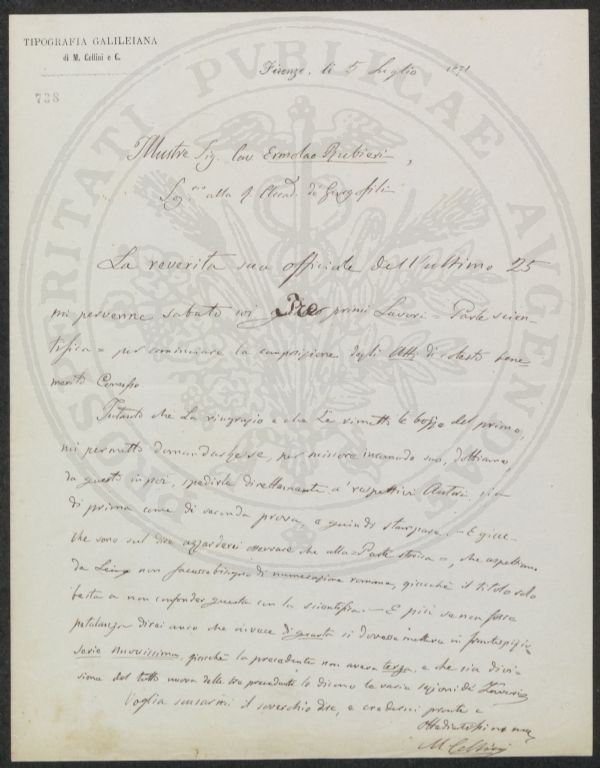 TIPOGRAFIA GALILEIANA
di M. Cellini e C.
738
Firenze, li 5 Luglio 1871
Illustre Sig. Cav. Ermolao Rubieri,
Seg.rio alla R. Accad. de' Georgofili
La reverita sua officiale dell'ultimo 25
mi pervenne sabato coi primi Lavori = Parte scien-
tifica = per cominciare la composizione degli Atti di cotesto bene-
merito Consesso
Intanto che La ringrazio e che Le rimetto le bozze del primo,
mi permetto domandarle se, per minore incomodo suo, dobbiamo,
da questo in poi, spedirle direttamente a' respettivi Autori, sia
di prima come di seconda prova, e quindi stampare. — E giac-
chè sono sul dire azzarderei osservare che alla = Parte storica =, che aspettiamo
da Lei non facesse bisogno di numerazione romana, giacchè il titolo solo
basta a non confonder questa con la scientifica. — E più se non fosse
petulanza direi anco che invece di quarta si dovesse mettere in frontespizio
serie nuovissima, giacchè la precedente non aveva terza, e che sia divi-
sione del tutto nuova dalle tre precedenti lo dicono le varie sezioni di
Voglia scusarmi il soverchio dire, e credermi pronto e
M Cellini